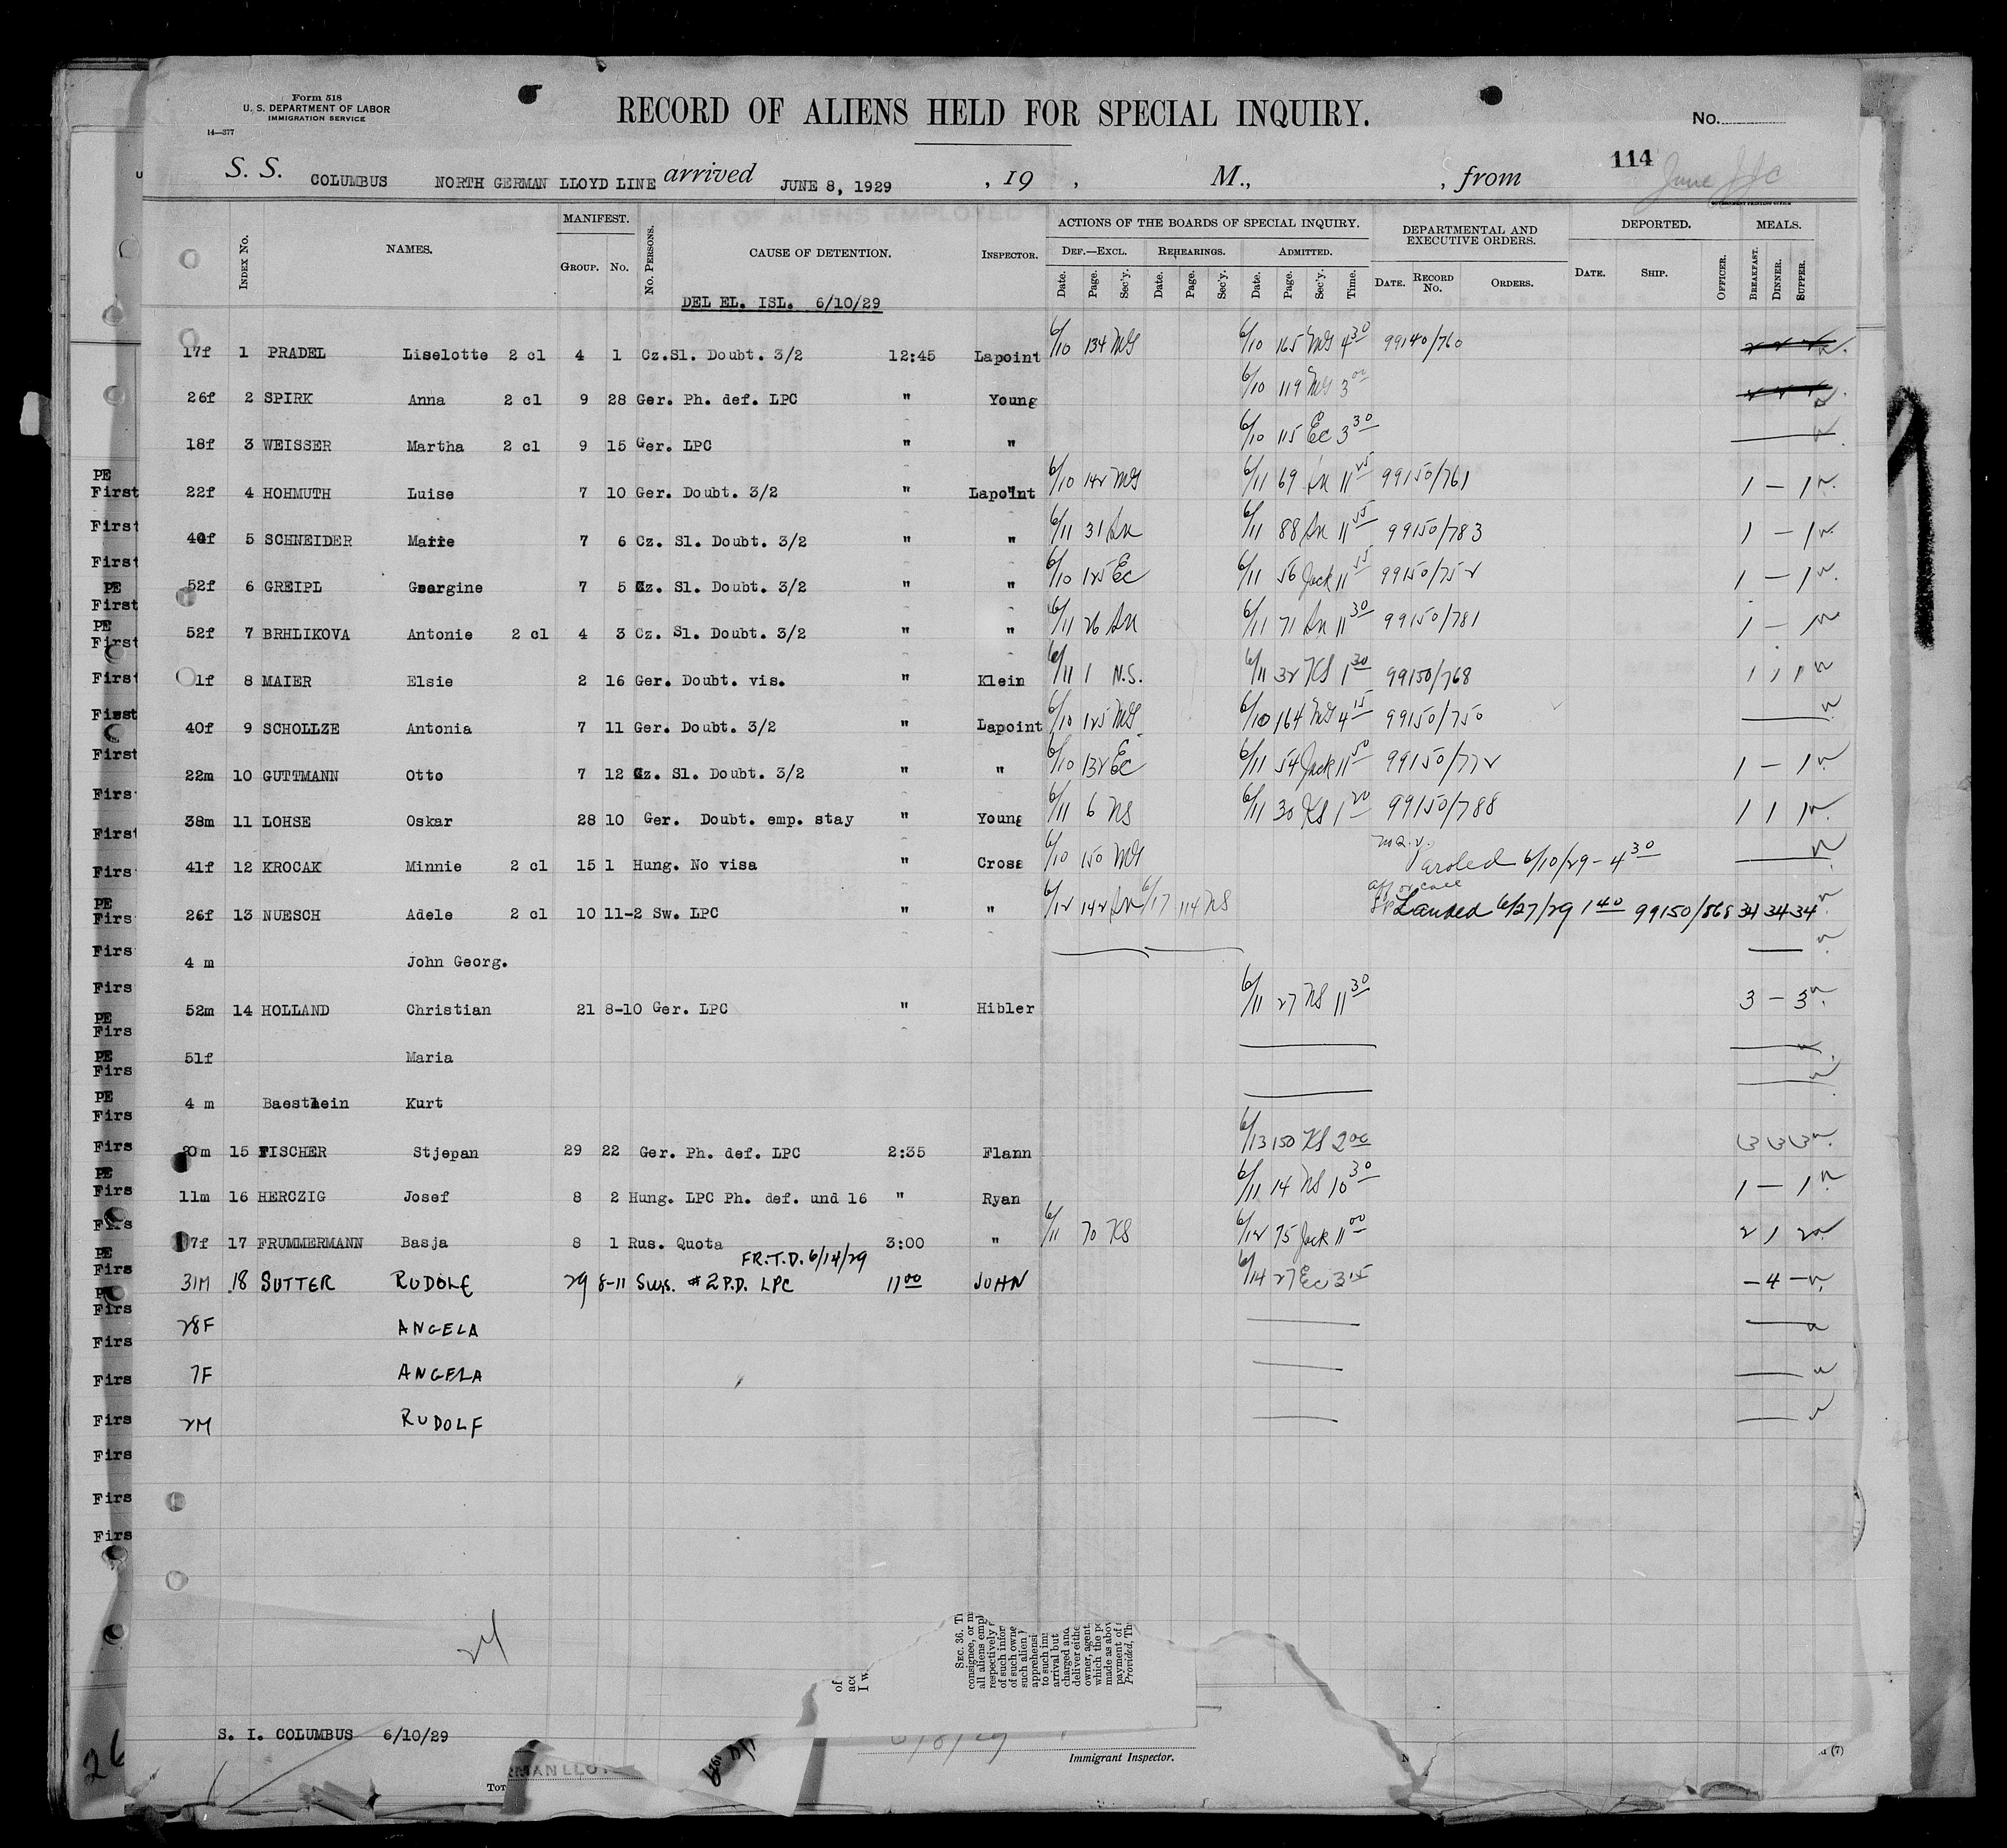 Form 518
U. S. DEPARTMENT OF LABOR
IMMIGRATION SERVICE
14—377
RECORD OF ALIENS HELD FOR SPECIAL INQUIRY.
No.
114
S. S. COLUMBUS NORTH GERMAN LLOYD LINE arrived JUNE 8, 1929 , 19 , M., , from
June
GOVERNMENT PRINTING OFFICE
Index No. NAMES. MANIFEST. Group. No. No. Persons. CAUSE OF DETENTION. Inspector. ACTIONS OF THE BOARDS OF SPECIAL INQUIRY. DEPARTMENTAL AND EXECUTIVE ORDERS. DEPORTED. MEALS.
Def.—Excl. Rehearings. Admitted.
Date. Page. Sec'y. Date. Page. Sec'y. Date. Page. Sec'y. Time. Date. Record No. Orders. Date. Ship. Officer. Breakfast. Dinner. Supper.
DEL EL. ISL. 6/10/29
17f 1 PRADEL Liselotte 2 cl 4 1 Cz.Sl. Doubt. 3/2 12:45 Lapoint 6/10 134 MG 6/10 165 MG 4 30 99140/760
26f 2 SPIRK Anna 2 cl 9 28 Ger. Ph. def. LPC " Young 6/10 119 MG 3 00
18f 3 WEISSER Martha 2 cl 9 15 Ger. LPC " " 6/10 115 Ec 3 30
PE
First 22f 4 HOHMUTH Luise 7 10 Ger. Doubt. 3/2 " Lapoint 6/10 142 MG 6/11 69 11 25 99150/761 1 — 1
First 40f 5 SCHNEIDER Marie 7 6 Cz. Sl. Doubt. 3/2 " " 6/11 31 6/11 88 11 55 99150/783 1 — 1
First
PE 52f 6 GREIPL Georgine 7 5 Cz. Sl. Doubt. 3/2 " " 6/10 125 Ec 6/11 56 Jack 11 55 99150/752 1 — 1
First
PE 52f 7 BRHLIKOVA Antonie 2 cl 4 3 Cz. Sl. Doubt. 3/2 " " 6/11 26 6/11 71 11 30 99150/781 1 — 1
First
First 1f 8 MAIER Elsie 2 16 Ger. Doubt. vis. " Klein 6/11 1 N.S. 6/11 32 KS 1 30 99150/768 1 1 1
First 40f 9 SCHOLLZE Antonia 7 11 Ger. Doubt. 3/2 " Lapoint 6/10 125 MG 6/10 164 MG 4 15 99150/750
First 22m 10 GUTTMANN Otto 7 12 Cz. Sl. Doubt. 3/2 " " 6/10 132 Ec 6/11 54 Jack 11 50 99150/772 1 — 1
Firs 38m 11 LOHSE Oskar 28 10 Ger. Doubt. emp. stay " Young 6/11 6 NS 6/11 30 KS 1 20 99150/788 1 1 1
First
Firs 41f 12 KROCAK Minnie 2 cl 15 1 Hung. No visa " Cross 6/10 150 MG Paroled 6/10/29 - 4 30
PE
Firs 26f 13 NUESCH Adele 2 cl 10 11-2 Sw. LPC " " 6/12 142 6/17 114 NS Landed 6/27/29 1 40 99150/868 34 34 34
Firs 4 m John Georg.
Firs 52m 14 HOLLAND Christian 21 8-10 Ger. LPC " Hibler 6/11 27 NS 11 30 3 — 3
PE
Firs
PE 51f Maria
Firs
PE 4 m Baestlein Kurt
Firs
Firs 0m 15 FISCHER Stjepan 29 22 Ger. Ph. def. LPC 2:35 Flann 6/13 150 KS 2 00 3 3 3
PE
Firs 11m 16 HERCZIG Josef 8 2 Hung. LPC Ph. def. und 16 " Ryan 6/11 14 NS 10 30 1 — 1
Firs 7f 17 FRUMMERMANN Basja 8 1 Rus. Quota 3:00 " 6/11 70 KS 6/12 75 Jack 11 00 2 1 2
PE FR.T.D. 6/14/29
Firs 31M 18 SUTTER RUDOLF 29 8-11 Swys. #2 P.D. LPC 11 00 JOHN 6/14 27 Ec 3 15 — 4 —
Firs 28F ANGELA
Firs
Firs 7F ANGELA
Firs 2M RUDOLF
Firs
Firs
Firs
24
SEC. 36. T
consignee, or m
all aliens empl
respectively
of such infor
of such owne
such alien
apprehensi
to such im
arrival but
charged and
deliver eithe
owner, agent
which the p
made as abov
payment of
Provided, Th
of
acc
I w
S. I. COLUMBUS 6/10/29
26
6/8/29
Immigrant Inspector.
(7)
RMAN LLOY
Tot